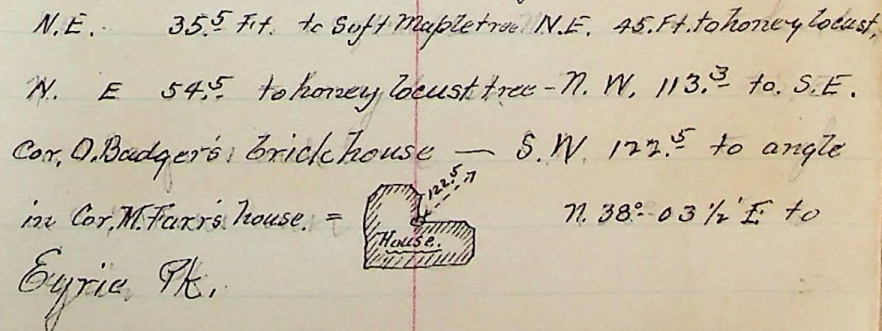 N.E. 35.5 Ft. to Soft Maple tree N.E. 45.Ft. to honey locust,
N. E 54.5 to honey locust tree - N. W. 113.3 to. S.E.
Cor. O. Badger's brick house — S.W 122.5 to angle
in Cor. M. Farr's house. = 122.5 House. N. 38°- 03 1/2' E. to
Eyrie Pk.